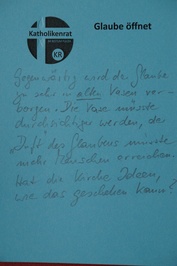 Katholikenrat
KR
Glaube öffnet
Gegenwärtig wird der Glaube
zu sehr in alten Vasen ver-
borgen. Die Vase müsste
durchsichtiger werden, der
Duft des Glaubens müsste
mehr Menschen erreichen.
Hat die Kirche Ideen,
wie das geschehen kann?